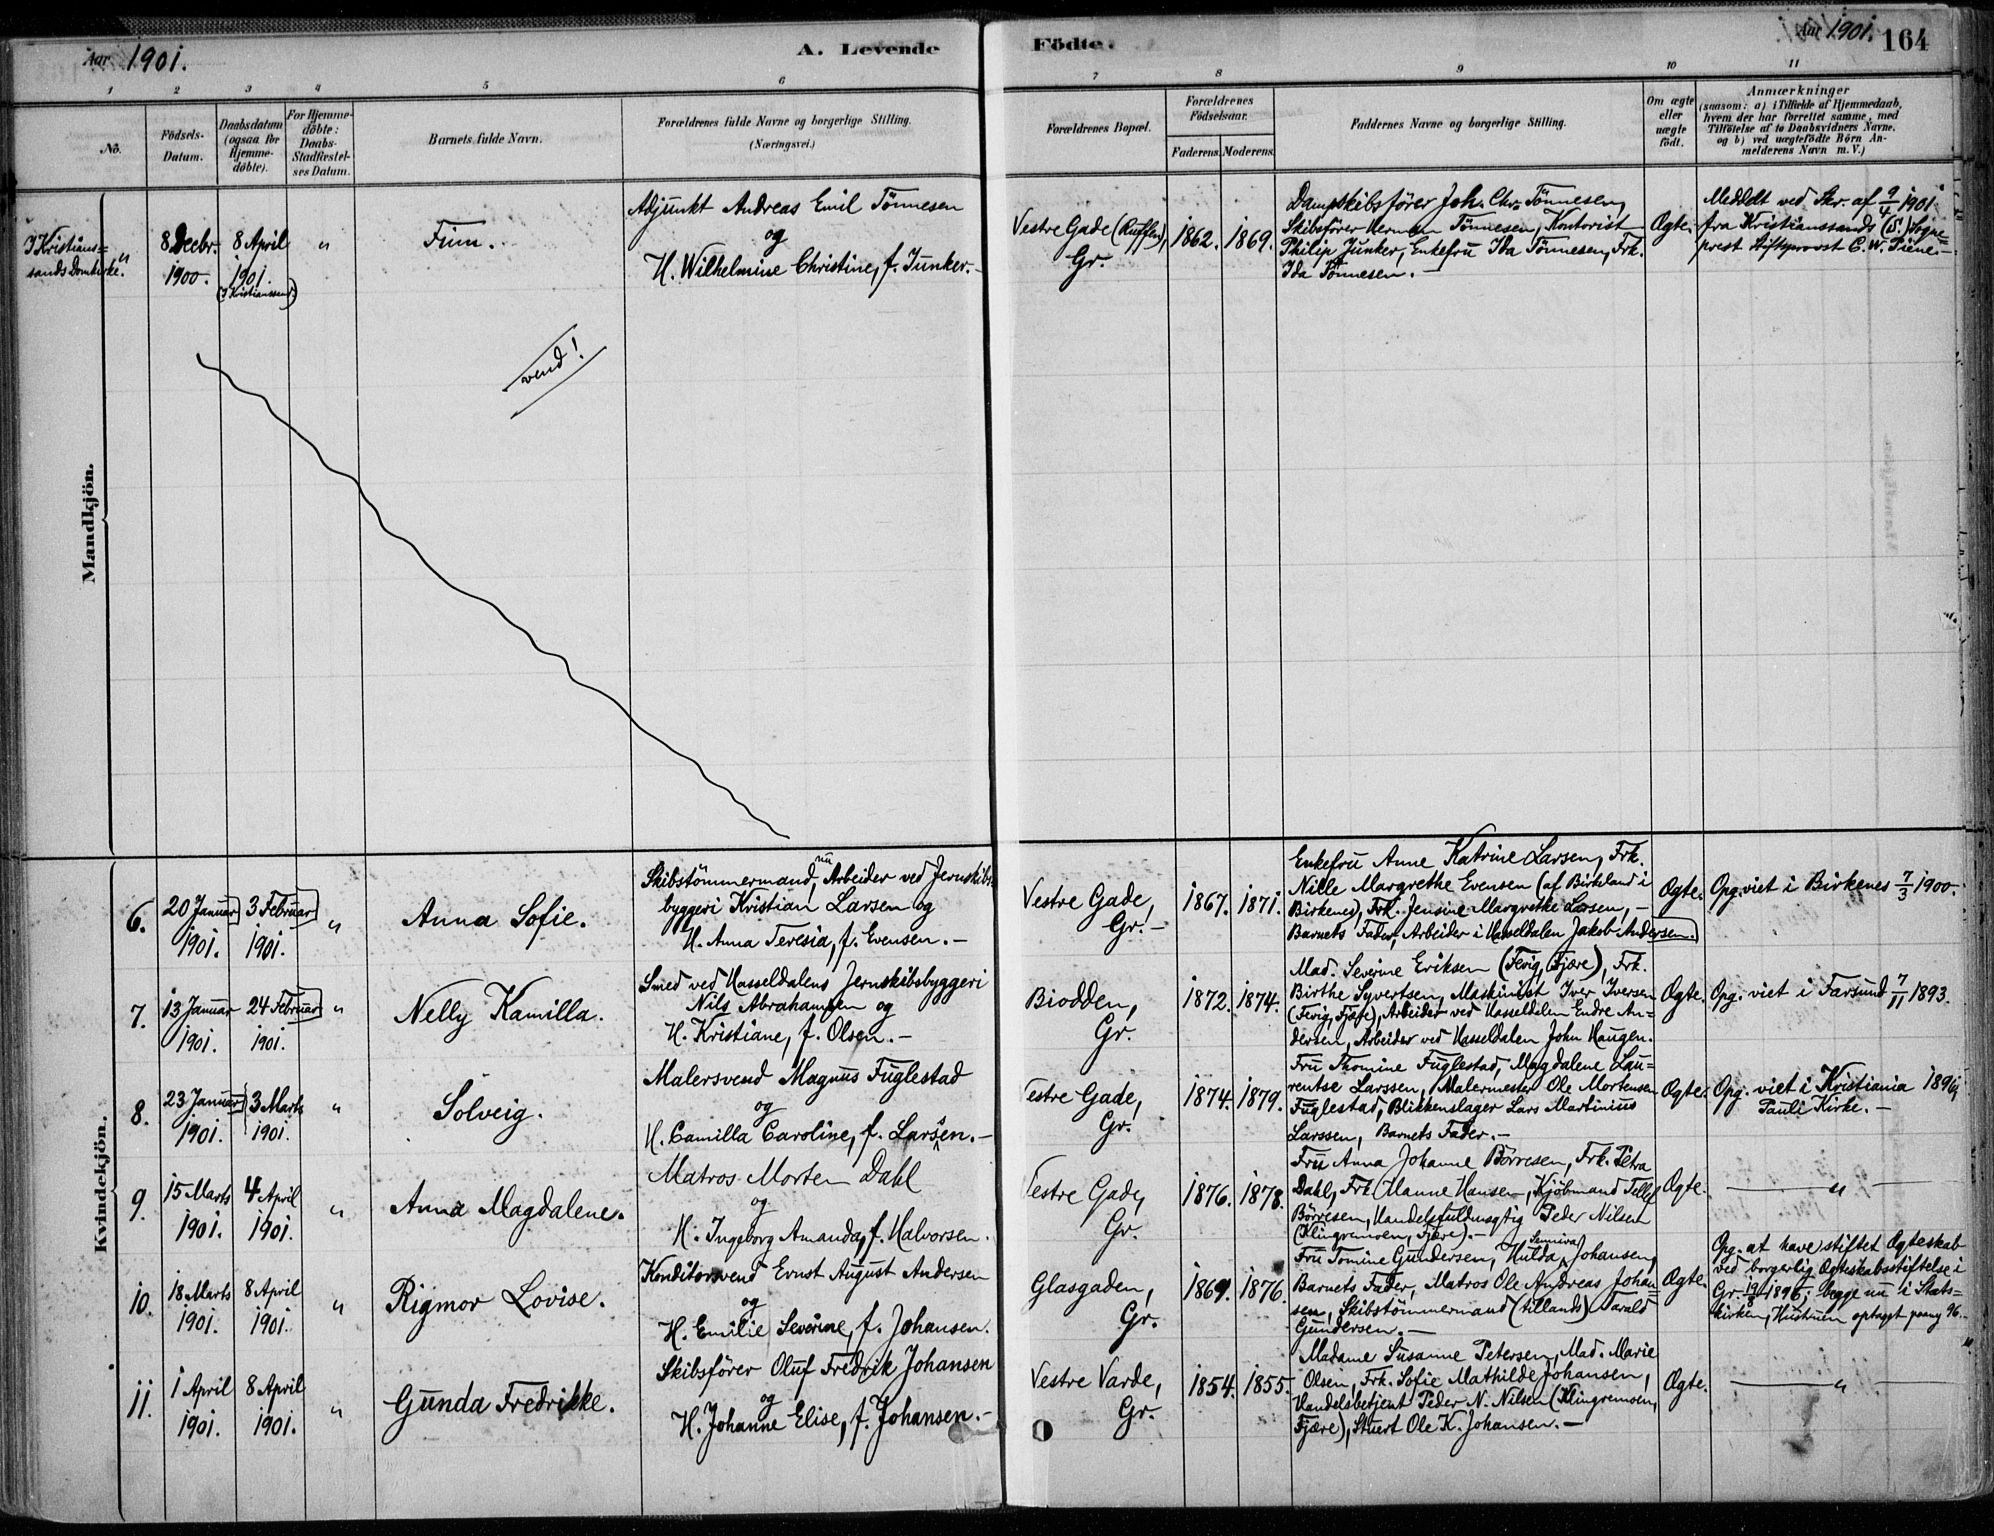 Aar 1901.
A. Levende
Födte.
Aar 1901.
164
1 2 3 4 5 6 7 8 9 10 11
No.
Födsels-
Datum.
Daabsdatum
(ogsaa for
Hjemme-
döbte).
For Hjemme-
döbte:
Daabs-
Stadfæstel-
ses Datum.
Barnets fulde Navn.
Forældrenes fulde Navne og borgerlige Stilling.
(Næringsvei.)
Forældrenes Bopæl.
Forældrenes
Födselsaar.
Faderens.
Moderens.
Faddernes Navne og borgerlige Stilling.
Om ægte
eller
uægte
födt.
Anmærkninger
(saasom: a) i Tilfælde af Hjemmedaab,
hvem der har forrettet samme, med
Tilföielse af to Daabsvidners Navne,
og b) ved uægtefödte Börn An-
melderens Navn m. V.)
Mandkjön.
I Kristians=
sands Domkirke.
8 Decbr.
1900.
8 April
1901.
(I Kristianssand.)
"
Finn.
Adjunkt Andreas Emil Tönnesen
og
H. Wilhelmine Christine, f. Junker.-
Vestre Gade
Gr.
1862.
1869.
Dampskibsförer Joh. Chr. Tönnesen,
Skibsförer Herman Tönnesen, Kontorist
Philip Junker, Enkefru Ida Tönnesen, Frk.
Ida Tönnesen. -
Ægte.
Meddelt ved Skr. af 9/4 1901
fra Kristianssands (S.) Sogne=
prest Stiftsprovst C. W.
vend!
Kvindekjön.
6.
20 Januar
1901.
3 Februar
1901.
"
Anna Sofie.
Skibstömmermand, nu Arbeider ved Jernskibs-
byggeri Kristian Larsen og
H. Anna Teresia, f. Evensen. -
Vestre Gade,
Gr. -
1867.
1871.
Enkefru Anne Katrine Larsen, Frk.
Nille Margrethe Evensen (af Birkeland i
Birkenes), Frk. Jensine Margrethe Larsen, -
Barnets Fader, Arbeider i Hasseldalen Jakob Andersen.
Ægte.
Opg. viet i Birkenes 7/3 1900.
7.
13 Januar
1901.
24 Februar
1901.
"
Nelly Kamilla.
Smed ved Hasseldalens Jernskibsbyggeri
Nils Abrahamsen og
H. Kristiane, f. Olsen. -
Biodden,
Gr.
1872.
1874.
Mad. Severine Eriksen (Fevig, Fjære), Frk.
Birthe Syvertsen, Maskinist Iver Iversen
(Fevig, Fjære), Arbeider ved Hasseldalen Endre An=
dersen, Arbeider ved Hasseldalen John Haugen.
Ægte.
Opg. viet i Farsund 7/11 1893.
8.
23 Januar
1901.
3 Marts
1901.
"
Solveig.
Malersvend Magnus Fuglestad
og
H. Camilla Caroline, f. Larsen. -
Vestre Gade,
Gr.
1874.
1879.
Fru Thomine Fuglestad, Magdalene Lau=
rentse Larssen, Malermester Ole Mortensen
Fuglestad, Blikkenslager Lars Martinius
Larssen, Barnets Fader. -
Ægte.
Opg. viet i Kristiania
Pauli Kirke. -
9.
15 Marts
1901.
4 April
1901.
"
Anna Magdalene.
Matros Morten Dahl
og
H. Ingeborg Amanda, f. Halvorsen.
Vestre Gade,
Gr.
1876.
1878.
Fru Anna Johanne Börresen, Frk. Petra
Dahl, Frk. Hanne Hansen, Kjöbmand Tellef
Börresen, Handelsfuldmægtig Peder Nilsen
(Klingremoen, Fjære). -
Ægte.
— " —
10.
18 Marts
1901.
8 April
1901.
"
Rigmor Lovise.
Konditorsvend Ernst August Andersen
og
H. Emilie Severine, f. Johansen.
Glasgaden,
Gr.
1869.
1876.
Fru Tomine Gundersen, Hulda Senniva Johansen,
Barnets Fader, Matros Ole Andreas Johan=
sen, Skibstömmermand (tillands) Tarald
Gundersen. -
Ægte.
Opg. at have stiftet Ægteskab
ved borgerlig Ægteskabsstiftelse i
Gr. 19/8 1896; begge nu i Stats=
kirken, Hustruen optaget
11.
1 April
1901.
8 April
1901.
"
Gunda Fredrikke.
Skibsförer Oluf Fredrik Johansen
og
H. Johanne Elise, f. Johansen. -
Vestre Varde,
Gr.
1854.
1855.
Madame Susanne Petersen, Mad. Marie
Olsen, Frk. Sofie Mathilde Johansen,
Handelsbetjent Peder N. Nilsen (Klingremoen,
Fjære), Stuert Ole K. Johansen. -
Ægte.
— " —